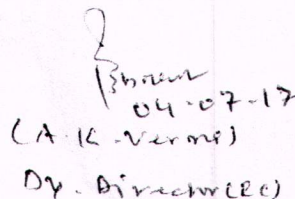 04-07-17
(A.K. Verma)
Dy. Director (RC)